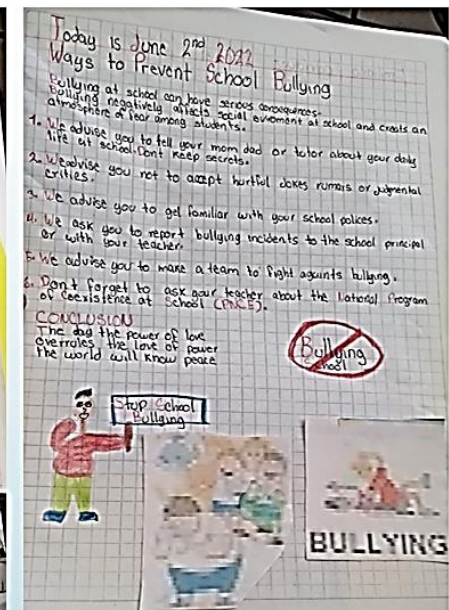 Today is June 2nd 2022
Ways to Prevent School Bullying
Bullying at school can have serious consequences.
Bullying negatively affects social eviroment at school and creats an
atmosphere of fear among students.
1. We advise you to tell your mom dad or tutor about your daily
life at school. Dont keep secrets.
2. We advise you not to accept hurtful Jokes rumors or judgmental
crities.
3. We advise you to get familiar with your school polices.
4. We ask you to report bullying incidents to the school principal
or with your teacher.
5. We advise you to make a team to fight againts bullying.
6. Don't forget to ask your teacher about the National Program
of Coexistence at School (PNCE).
CONCLUSION
The day the power of love
overrules the love of power
the world will know peace
Bullying
School
Stop School
Bullying
BULLYING